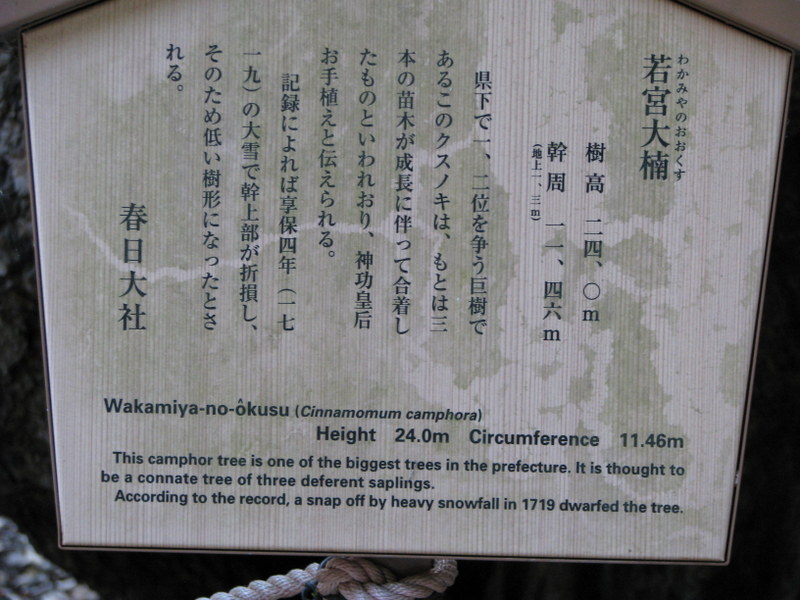 わかみやのおおくす
若宮大楠
樹高 二四、〇m
幹周 一一、四六m
(地上一、三m)
県下で一、二位を争う巨樹で
あるこのクスノキは、もとは三
本の苗木が成長に伴って合着し
たものといわれおり、神功皇后
お手植えと伝えられる。
記録によれば享保四年(一七
一九)の大雪で幹上部が折損し、
そのため低い樹形になったとさ
れる。
春日大社
Wakamiya-no-ôkusu (Cinnamomum camphora)
Height 24.0m Circumference 11.46m
This camphor tree is one of the biggest trees in the prefecture. It is thought to
be a connate tree of three deferent saplings.
According to the record, a snap off by heavy snowfall in 1719 dwarfed the tree.